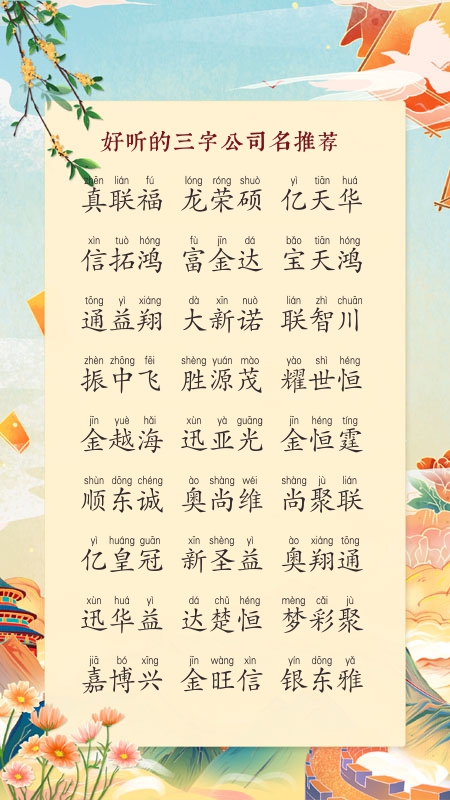 好听的三字公司名推荐
zhēn lián fú lóng róng shuò yì tiān huá
真联福 龙荣硕 亿天华
xìn tuò hóng fù jīn dá bǎo tiān hóng
信拓鸿 富金达 宝天鸿
tōng yì xiáng dà xīn nuò lián zhì chuān
通益翔 大新诺 联智川
zhèn zhōng fēi shèng yuán mào yào shì héng
振中飞 胜源茂 耀世恒
jīn yuè hǎi xùn yà guāng jīn héng tíng
金越海 迅亚光 金恒霆
shùn dōng chéng ào shàng wéi shàng jù lián
顺东诚 奥尚维 尚聚联
yì huáng guān xīn shèng yì ào xiáng tōng
亿皇冠 新圣益 奥翔通
xùn huá yì dá chǔ héng mèng cǎi jù
迅华益 达楚恒 梦彩聚
jiā bó xīng jīn wàng xìn yín dōng yǎ
嘉博兴 金旺信 银东雅